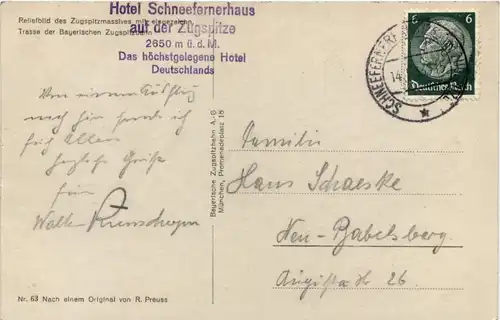 Reliefbild des Zugspitzmassives mit eingezeichn.
Trasse der Bayerischen Zugspitzbahn
Hotel Schneefernerhaus
auf der Zugspitze
2650 m ü.d.M.
Das höchstgelegene Hotel
Deutschlands
6 6
Deutsches Reich
SCHNEEFERNER
14.
Von einem Ausflug
nach hier sende ich
Euch Allen
herzliche Grüße
Walter
Bayerische Zugspitzbahn A.-G.
München, Promenadeplatz 15
Familie
Hans Schaeske
Neu-Babelsberg
26
Nr. 63 Nach einem Original von R. Preuss